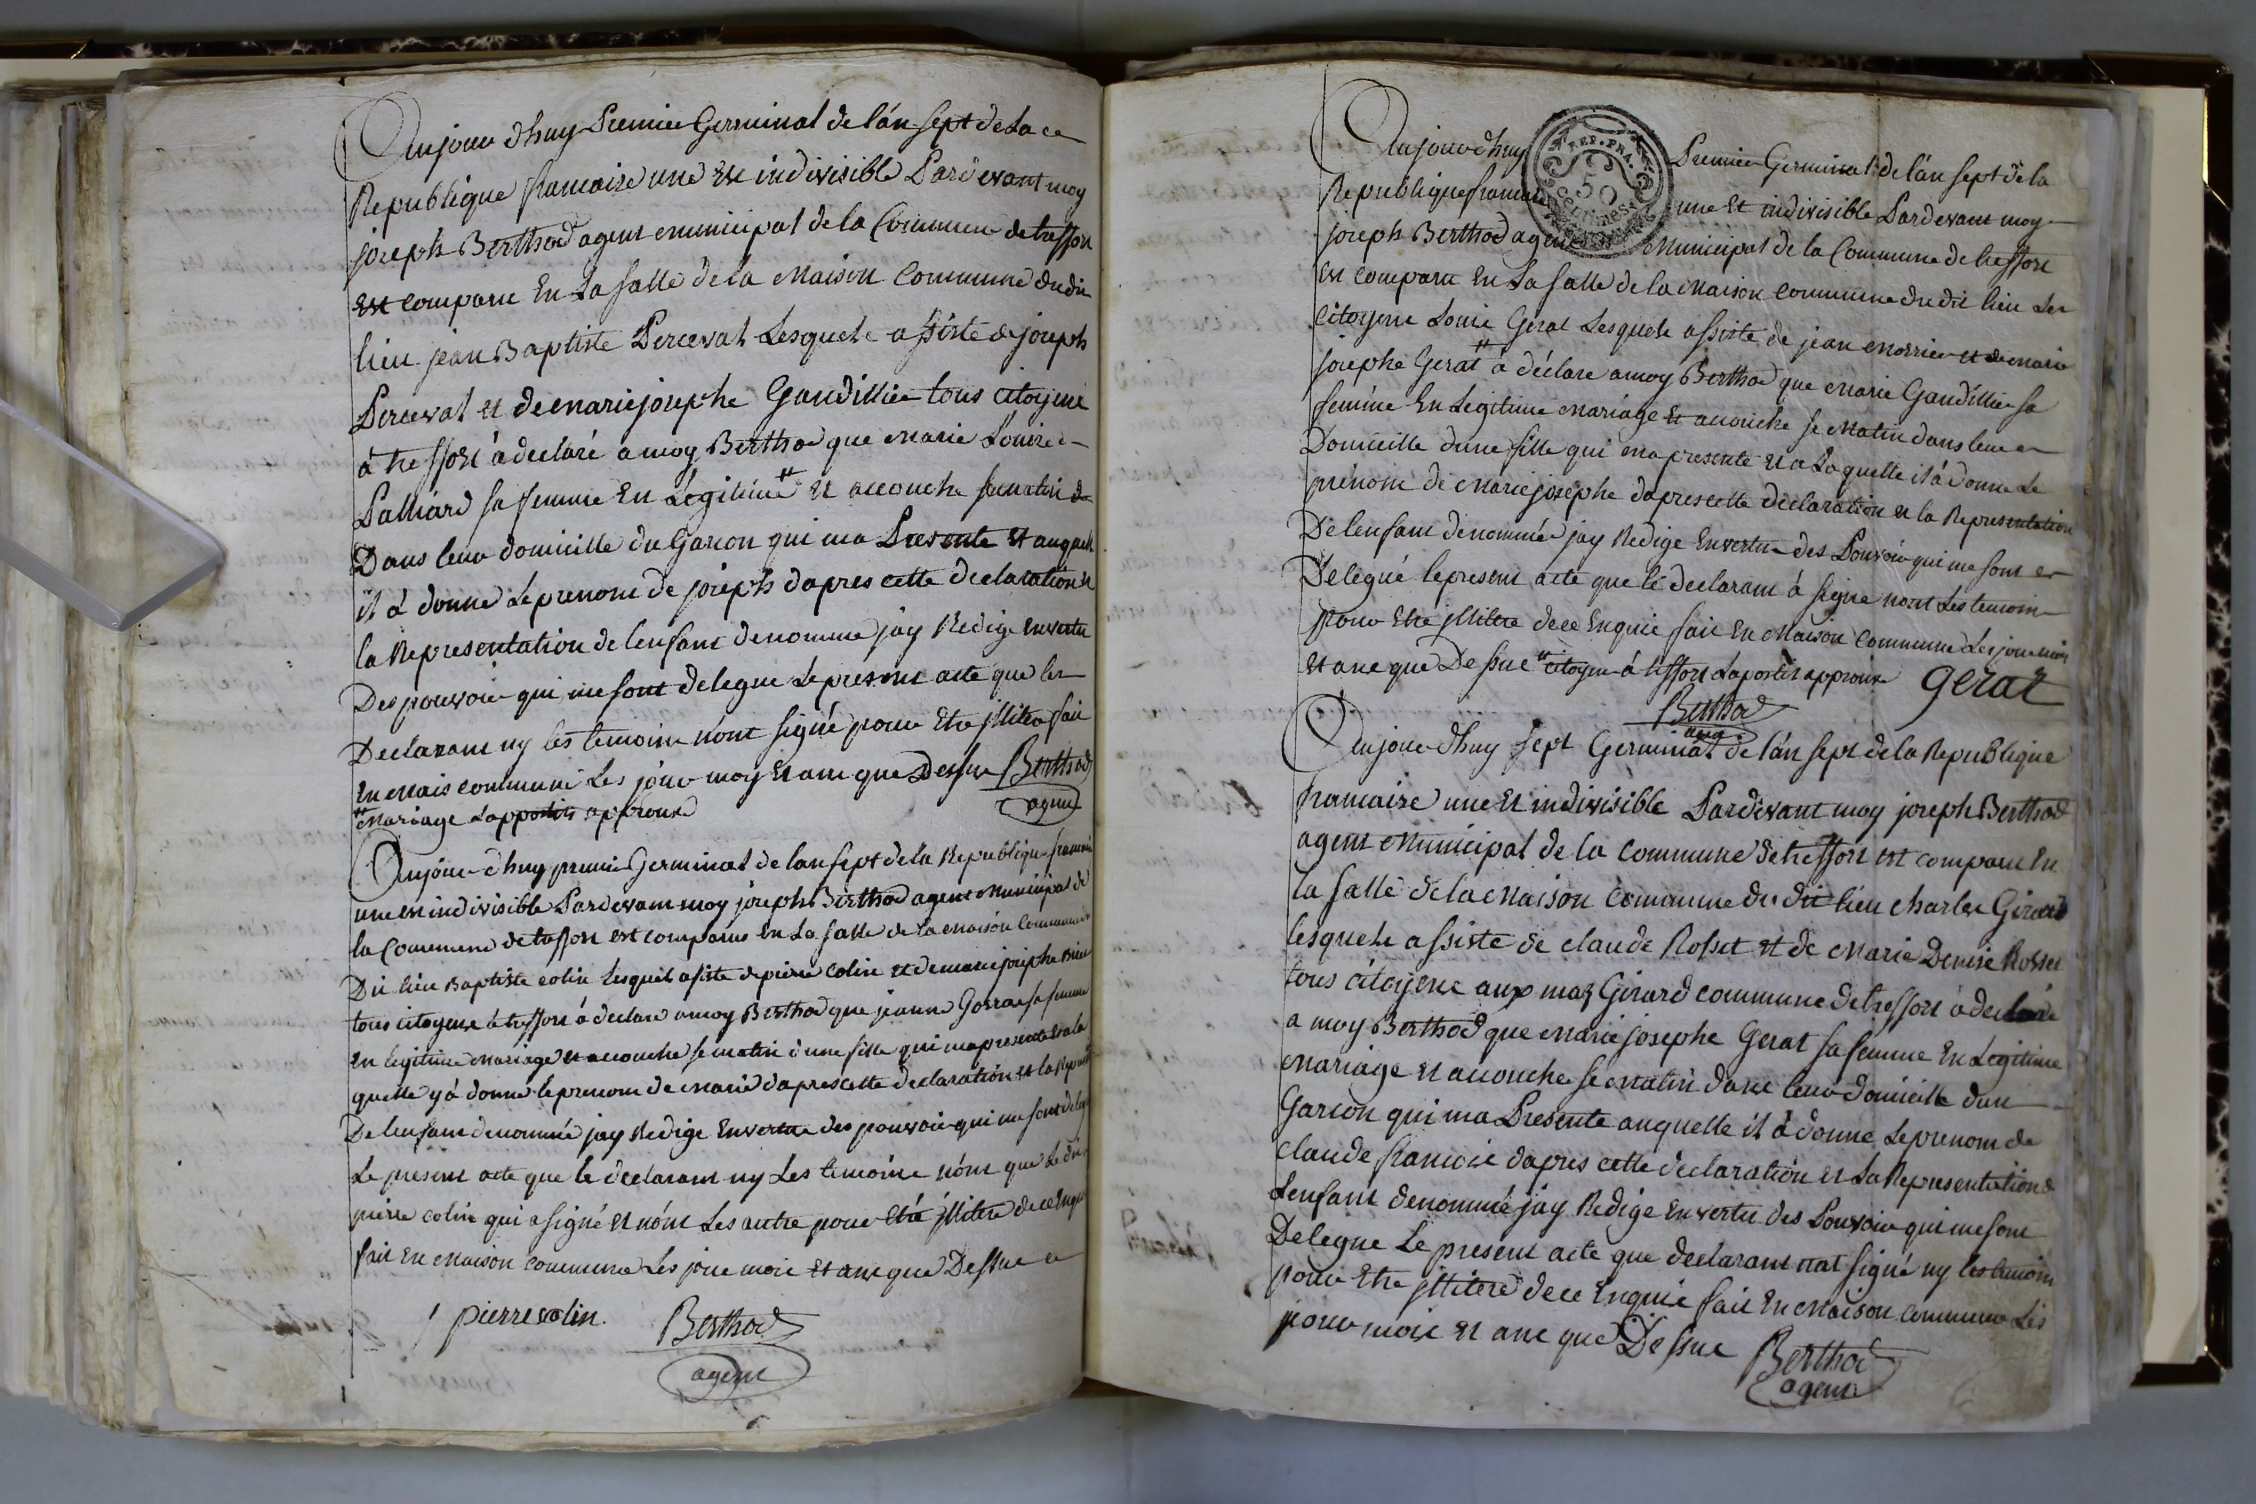 Aujour dhuy Premier Germinal de l'án Sept de La ce
Republique francaise une Et indivisible Pardevant moy
joseph Berthod agent municipal de la Commune de treffort
Est comparu En La salle de la Maison Commune du dit
lieu jean Baptiste Perceval Lesquels assiste de joseph
Perceval et de marie josephe Gaudillier tous citoyens
á treffort á declaré a moy Berthod que marie Louise
Palliard sa femme En Légitime # Et accouche se matin
Dans leur domicille du Garcon qui ma Presente Et auquelle
il á donne Le prenom de joseph dapres cette declaration et
la Representation de lenfant denomme jay Redige En vertu
Des pouvoir qui me sont delegue Le present acte que les
Declarant ny les temoins n'ont signé pour Etre jllitere fait
En mais commune Les jour moy Et ans que Dessus Berthod
agent
# Mariage Lappostis approuve
Aujour dhuy premier Germinal de lan sept de la Republique francaise
une et indivisible Pardevant moy joseph Berthod agent Municipal de
la Commune de treffort est comparus En La Salle de la maison Commune du
Dit lieu Baptiste colin lesquels assiste de pierre colin et de marie josephe
tous citoyens á treffort á declare a moy Berthod que jeanne sa femme
En legitime Mariage et accouche se matin d'une fille qui ma presente et a la
quelle y á donne le prenom de marie dapres cette declaration et la
De lenfant denommé jay Redige En vertu des pouvoir qui me sont
Le present acte que le declarant ny Les temoins nónt que Le dit
pierre colin qui a signé Et nónt Les autre pour Etre jllitere de ce Enquis
fait En Maison commune Les jour mois Et ans que Dessus
pierre colin. Berthod
agent
Aujour dhuy Premier Germinal de l'án Sept de la
Republique francaise une Et indivisible Pardevant moy
joseph Berthod agent Municipal de la Commune de treffort
Est comparu En La Salle de la Maison commune du dit lieu Les
citoyens Louis Gerat Lesquels assiste de jean morrier et de marie
josephe Gerat # á déclare a moy Berthod que marie Gaudillier sa
femme En Légitime mariage Et accouche se Matin dans leur
Domicille dune fille qui ma presente Et a Laquelle il á donne Le
prénom de marie josephe dapres cette declaration et la Representation
De lenfant denommé jay Redige En vertu des Pouvoir qui me sont
Délégué le present acte que le declarant á signe nont Les temoin
pour Etre jllitere de ce Enquis fait En Maison Commune Les jour mois
Et ans que Dessus # citoyen á treffort Lapostis approuve Gerat
Berthod
agen
Aujour dhuy sept Germinal de l'án sept de la Republique
francaise une Et indivisible Pardevant moy joseph Berthod
agent Municipal de la Commune de treffort Est comparu En
la salle de la Maison commune du dit lieu charles Girard
lesquels assiste de claude Rosset et de Marie Denise Rosset
tous citoyens aux maz Girard commune de treffort á declaré
a moy Berthod que Marie josephe Gerat sa femme En Légitime
Mariage et accouche se Matin dans leur domicille dun
Garcon qui ma Presente auquelle il á donne Le prenom de
claude francois dapres cette declaration et La Representation de
Lenfant denommé jay Redige En vertu des Pouvoir qui me sont
Delegue Le present acte que declarant nat signé ny les temoin
pour Etre jllitere de ce Enquis fait En Maison commune Les
jour mois et ans que Dessus Berthod
agent
REP. FRA.
50
Centimes